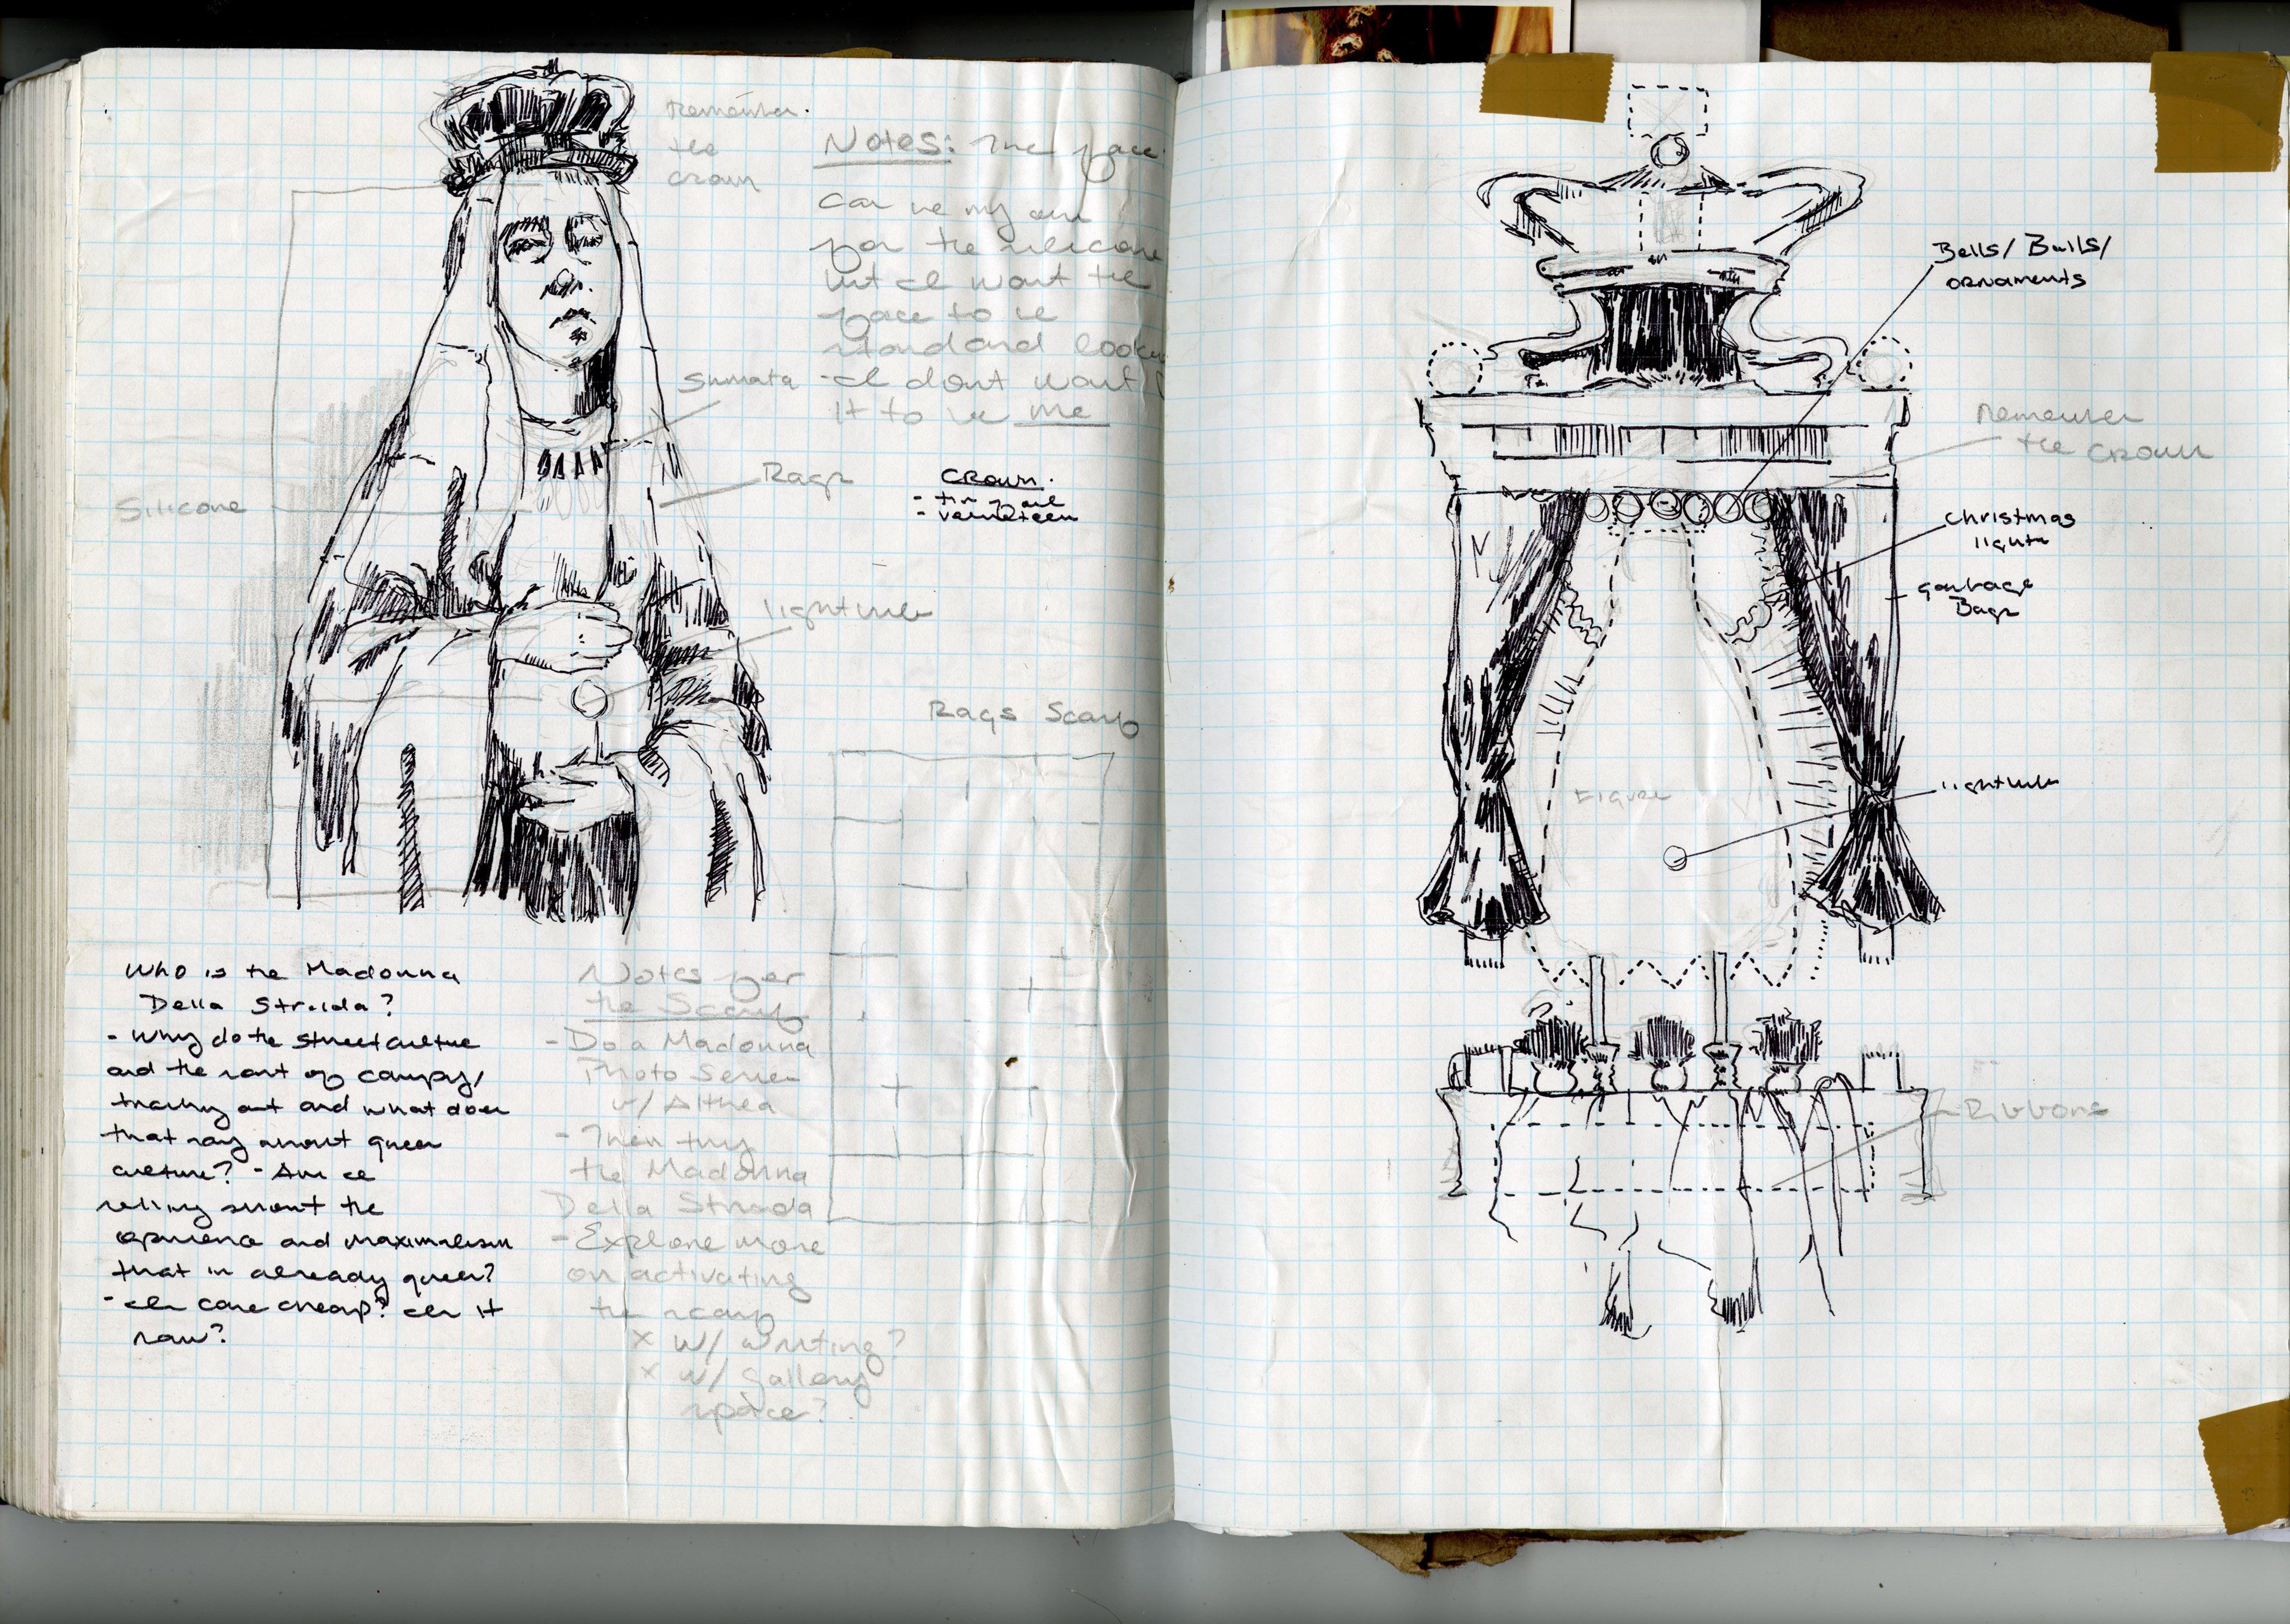 Remember
the
crown
Notes: The face
can be my own
for the silicone
but I want the
face to be
standard looking
- I dont want
it to be me
Rags
Crown.
- tin foil
-
Silicone
lightbulb
Rags Scarf
Who is the Madonna
Della Strada?
- Why do the street culture
and the sort of campy,
trashy art and what does
that say about queer
culture? - Am I
about the
opulence and maximalism
that is already queer?
- Is core cheap? Is it
raw?
Notes for
the Scarf
- Do a Madonna
Photo Series
w/ Althea
- Then try
the Madonna
Della Strada
- Explore more
on activating
the scarf
x w/ writing?
x w/ gallery
space?
Bells/Bulls/
ornaments
Remember
the Crown
Christmas
lights
garbage
Bags
Figure
lightbulb
Ribbons